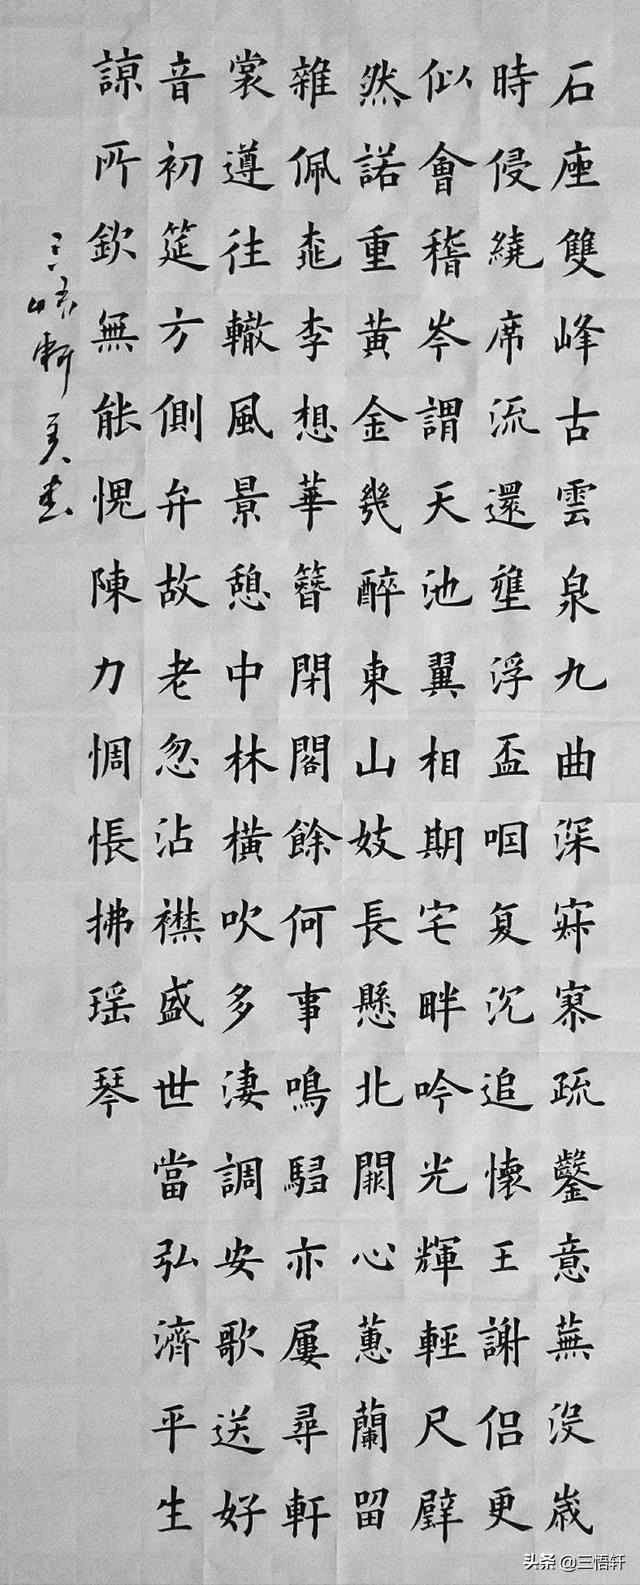 石座雙峰古雲泉九曲深寂寥疏鑿意蕪沒歲
時侵繞席流還壅浮盃咽复沉追懷王謝侶更
似會稽岑謂天池翼相期宅畔吟光輝輕尺璧
然諾重黃金幾醉東山妓長懸北闕心蕙蘭留
雜佩桃李想華簪閉閣餘何事鳴騶亦屢尋軒
裳遵往轍風景憩中林橫吹多淒調安歌送好
音初筵方側弁故老忽沾襟盛世當弘濟平生
諒所欽無能愧陳力惆悵拂瑶琴
三悟軒
头条 @三悟轩